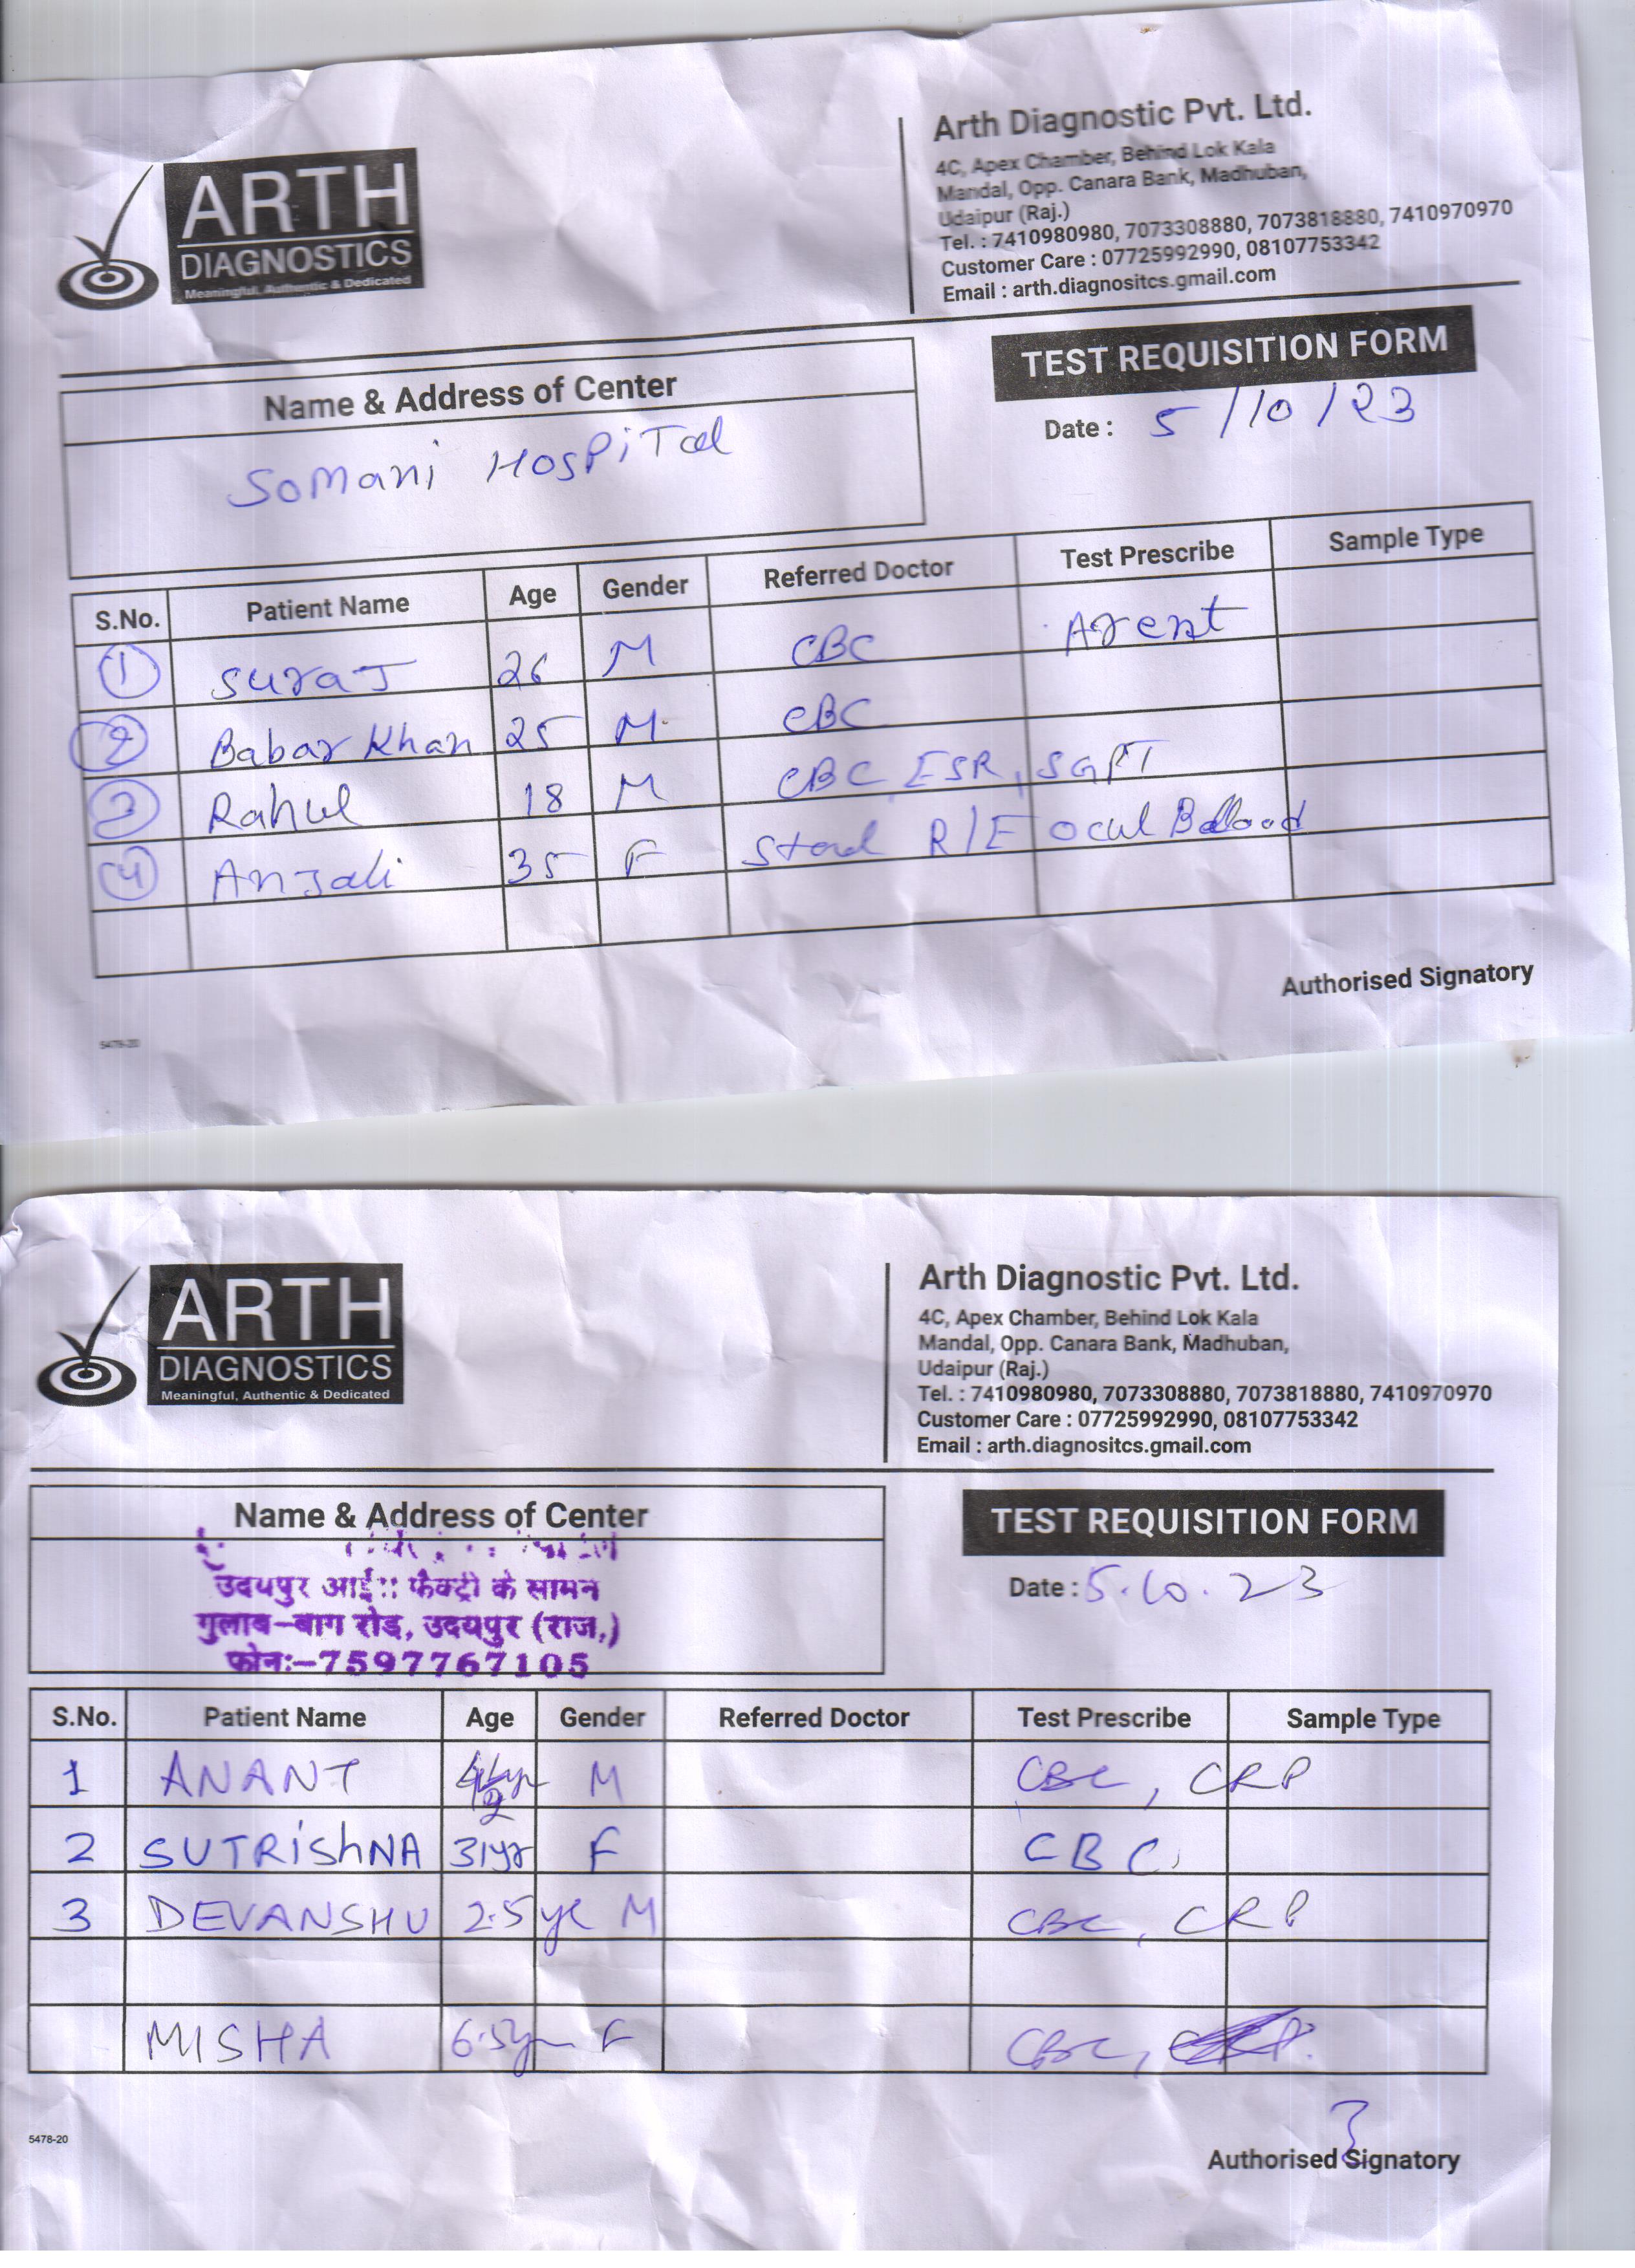 ARTH
DIAGNOSTICS
Meaningful, Authentic & Dedicated
Arth Diagnostic Pvt. Ltd.
4C, Apex Chamber, Behind Lok Kala
Mandal, Opp. Canara Bank, Madhuban,
Udaipur (Raj.)
Tel. : 7410980980, 7073308880, 7073818880, 7410970970
Customer Care : 07725992990, 08107753342
Email : arth.diagnositcs.gmail.com
Name & Address of Center
Somani Hospital
TEST REQUISITION FORM
Date : 5/10/23
S.No. Patient Name Age Gender Referred Doctor Test Prescribe Sample Type
1 Suraj 26 M CBC
2 Babar Khan 25 M CBC
3 Rahul 18 M CBC, ESR, SGPT
4 Anjali 35 F R/E
Authorised Signatory
5478-20
ARTH
DIAGNOSTICS
Meaningful, Authentic & Dedicated
Arth Diagnostic Pvt. Ltd.
4C, Apex Chamber, Behind Lok Kala
Mandal, Opp. Canara Bank, Madhuban,
Udaipur (Raj.)
Tel. : 7410980980, 7073308880, 7073818880, 7410970970
Customer Care : 07725992990, 08107753342
Email : arth.diagnositcs.gmail.com
Name & Address of Center
उदयपुर फैक्ट्री के सामन
गुलाब-बाग रोड, उदयपुर (राज.)
फोन:-7597767105
TEST REQUISITION FORM
Date : 5.10.23
S.No. Patient Name Age Gender Referred Doctor Test Prescribe Sample Type
1 ANANT M CBC, CRP
2 SUTRIShNA 31yr F CBC,
3 DEVANSHU 2.5 yr M CBC, CRP
MISHA 6.5yr F CBC,
5478-20
Authorised Signatory